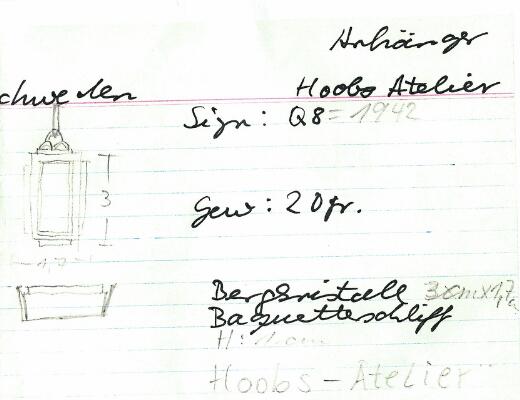 Anhänger
chweden Hoobs Atelier
Sign: Q8 = 1942
3
Gew: 20gr.
1,7
Bergkristall 3cmx1,7
Baguetteschliff
Hoobs-Atelier